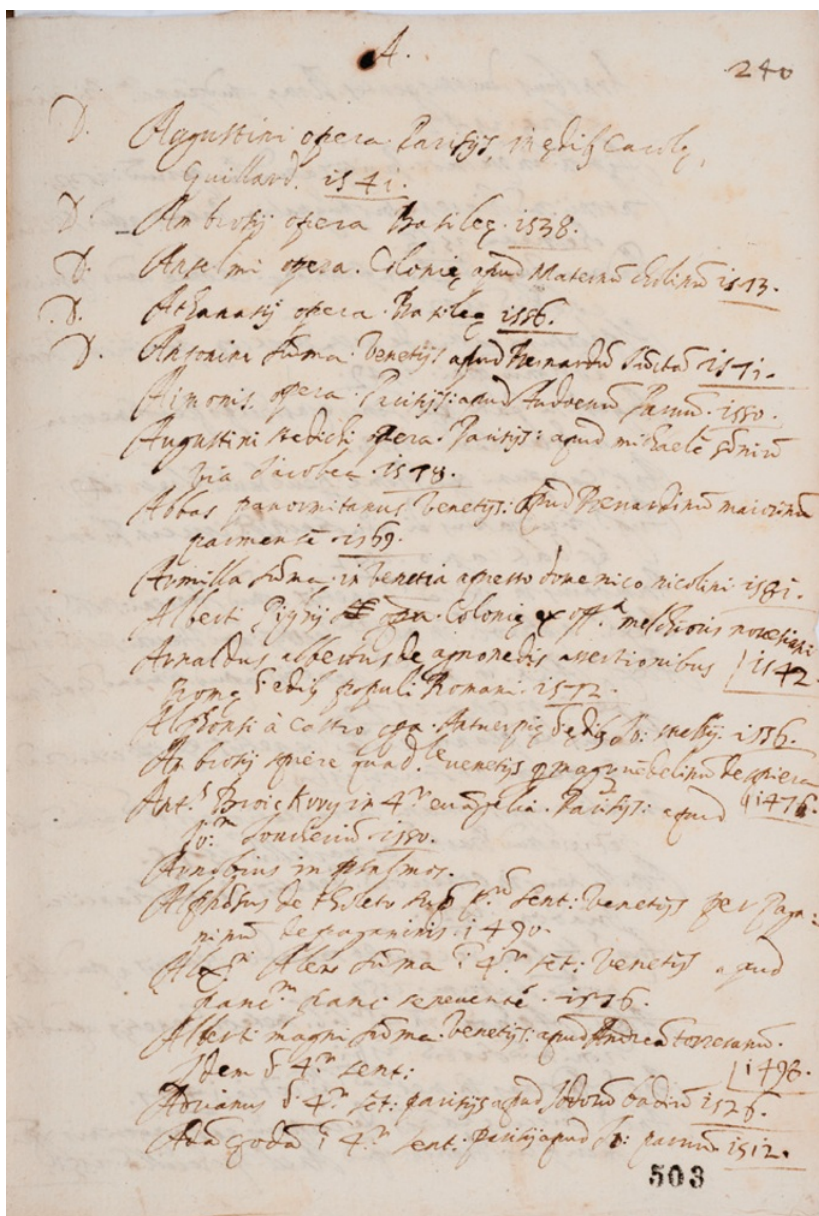 A.
240
D. Augustini opera Parisijs, in ędib Carolę
Guillard. 1541.
D. Ambrosij opera Basileę. 1538.
D. Anselmi opera. Colonię apud Maternū cholinū 1573.
D. Athanasij opera Basileę 1556.
D. Antonini sūma. Venetijs apud Bernardū Iūctā 1571.
Aimonis opera Parisijs: apud Audoenū Parvū. 1550.
Augustini stedichi opera. Parisijs: apud michaelē sōniū
via Iacobea. 1578.
Abbas panormitanus Venetijs: apud Bernardinū maiorinū
parmensē 1569.
Armilla sūma. in Venetia apresso domenico nicolini 1581.
Alberti Pighij opa. Colonię ex off.ª melchioris novesiani
Arnaldus albertus de agnoscedis assertionibus 1542.
Romę ī edib populi Romani. 1572.
Alphonsi à Castro opa. Antuerpię ī ędib Io: stelsij. 1556.
Ambrosij spiere quad.le venetijs
1476.
Ant.s Broickvvy in 4.r euāgelia. Parisijs: apud
Io:m 1550.
Arnobius in psalmos.
Alphōsus de tholeto sup p.m sent: Venetijs per Paga:
ninū de paganinis. 1490.
Alex.ri Ales sūma ī 4.r sēt: Venetijs apud
franc.m franc: senensē. 1576.
Alberti magni sūma. Venetijs: apud Andreā torresanū.
Idem ī 4.r sent: 1498.
Adrianus ī 4.r sēt: parisijs apud Iodocū badiū 1526.
Adā godā ī 4.r sent. parisij apud Io: parvū 1512.
503